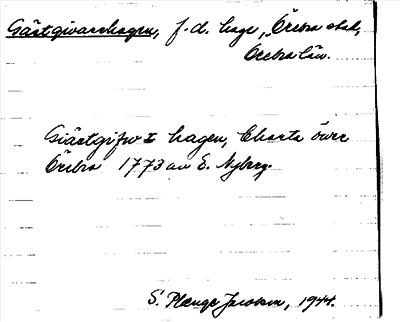 Gästgivarehagen, f.d. hage, Örebro stad,
Örebro län.
Giästgifw hagen, Charta över
Örebro 1773 av E. Nyberg.
S. Plænge Jacobson, 1944.